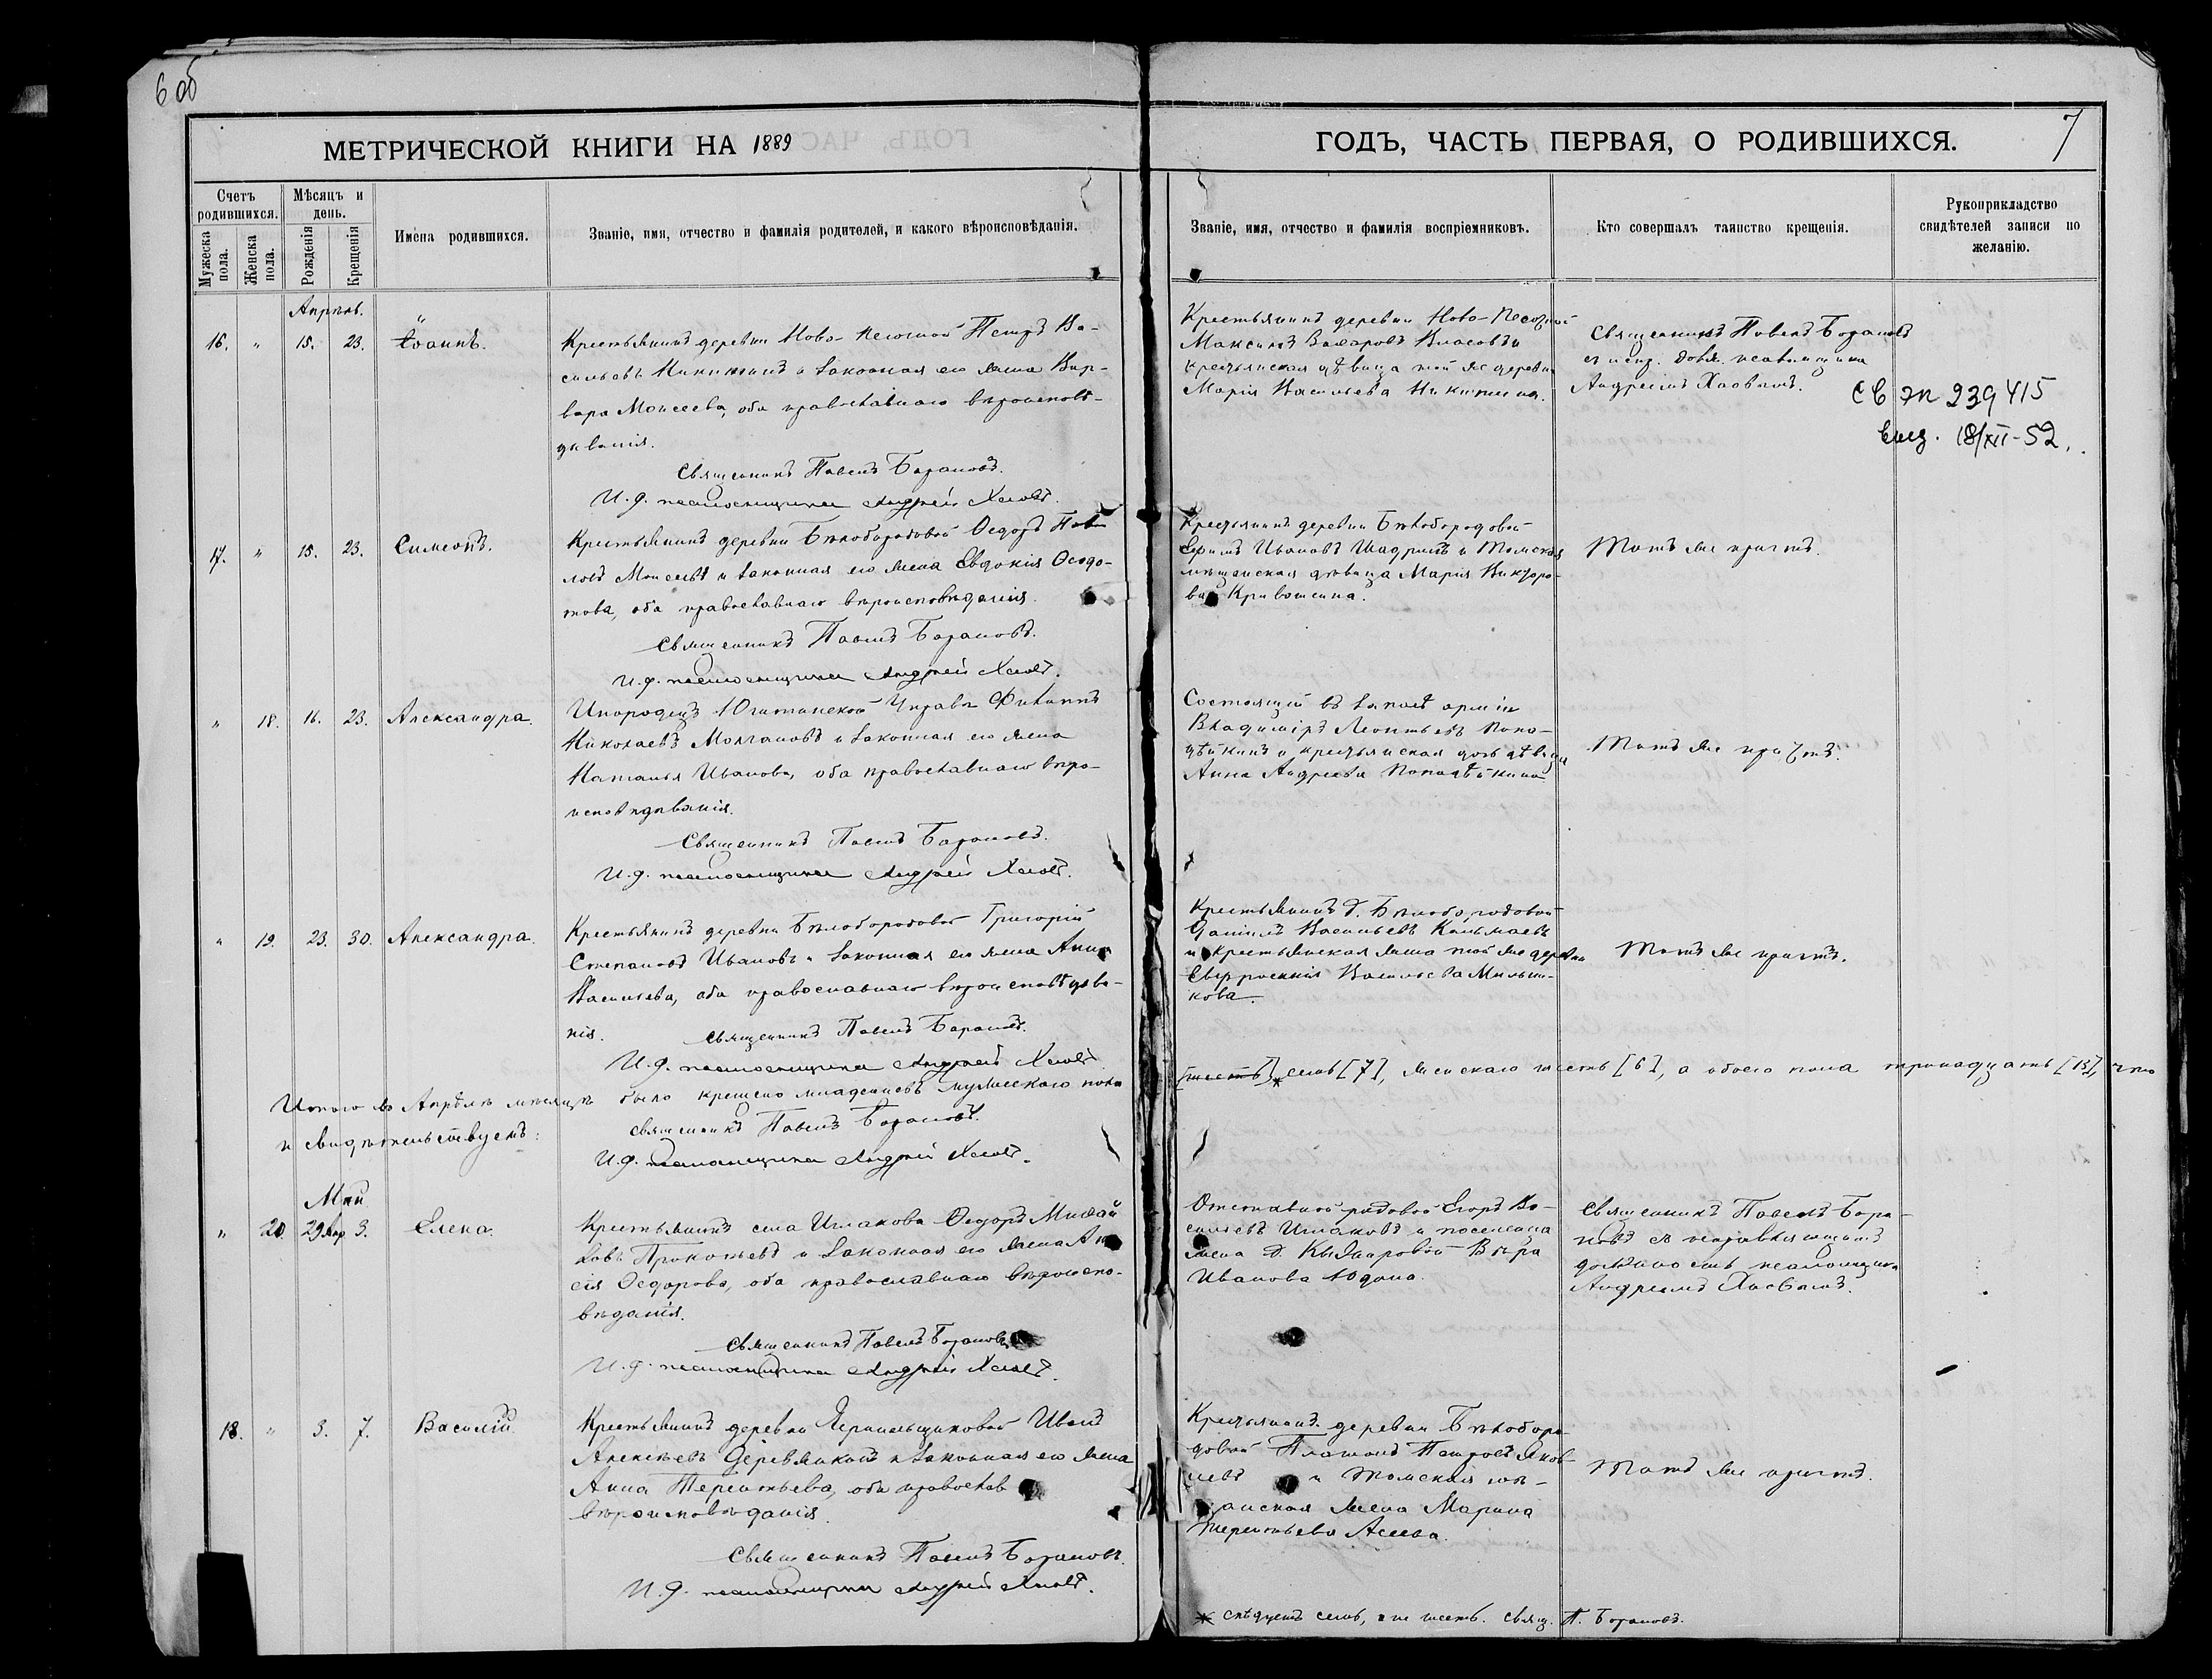 6 об
МЕТРИЧЕСКОЙ КНИГИ НА 1889
ГОДЪ, ЧАСТЬ ПЕРВАЯ, О РОДИВШИХСЯ.
7
Счетъ родившихся.
Мужеска пола.
Женска пола.
Мѣсяцъ и день.
Рожденія
Крещенія
Имена родившихся.
Званіе, имя, отчество и фамилія родителей, и какого вѣроисповѣданія.
Званіе, имя, отчество и фамилія воспріемниковъ.
Кто совершалъ таинство крещенія.
Рукоприкладство свидѣтелей записи по желанію.
Апрѣль.
16. " 15. 23. Іоаннъ.
Крестьянинъ деревни Ново-Песочной Петръ Ва-
сильевъ Никитинъ и законная его жена Вар-
вара Моисеева, оба православнаго вѣроисповѣ-
дыванія.
Священникъ Павелъ Барановъ.
И. д. псаломщика Андрей Хаовъ.
Крестьянинъ деревни Ново-Песочной
Максимъ Захаровъ Власовъ и
крестьянская дѣвица той же деревни
Марія Васильева Никитина.
Священникъ Павелъ Барановъ
съ испр. долж. псаломщика
Андреемъ Хаовымъ.
СВ ЭП 239415
выд. 18/XII-52.
17. " 15. 23. Симеонъ.
Крестьянинъ деревни Бѣлобородовой Ѳедоръ Пав-
ловъ Моисеевъ и законная его жена Евдокія Ѳеодо-
това, оба православнаго вѣроисповѣданія.
Священникъ Павелъ Барановъ.
И. д. псаломщика Андрей Хаовъ.
Крестьянинъ деревни Бѣлобородовой
Ефимъ Ивановъ Шадринъ и Томская
мѣщанская дѣвица Марія Викторо-
ва Кривошеина.
Тотъ же причтъ.
" 18. 16. 23. Александра.
Инородецъ Управы Филиппъ
Николаевъ Молчановъ и законная его жена
Наталья Иванова, оба православнаго вѣро-
исповѣдыванія.
Священникъ Павелъ Барановъ.
И. д. псаломщика Андрей Хаовъ.
Состоящій въ запасѣ арміи
Владиміръ Леонтьевъ Попа-
дѣйкинъ и крестьянская дочь дѣвица
Анна Андреева Попадѣйкина
Тотъ же причтъ.
" 19. 23. 30. Александра.
Крестьянинъ деревни Бѣлобородовой Григорій
Степановъ Ивановъ и законная его жена Анна
Васильева, оба православнаго вѣроисповѣдова-
нія. Священникъ Павелъ Барановъ.
И. д. псаломщика Андрей Хаовъ.
Крестьянинъ д. Бѣлобородовой
Даніилъ Васильевъ
и крестьянская жена той же деревни
Евфросинія Васильева Мельни-
кова.
Тотъ же причтъ.
Итого въ Апрѣлѣ мѣсяцѣ было крещено младенцевъ мужескаго пола [шесть]* семь [7], женскаго шесть [6], а обоего пола тринадцать [13], что
и свидѣтельствуемъ:
Священникъ Павелъ Барановъ.
И. д. псаломщика Андрей Хаовъ.
Май
" 20. 29 Апр 3. Елена.
Крестьянинъ села Ишакова Ѳедоръ Михай-
ловъ Прокопьевъ и законная его жена
Ѳедорова, оба православнаго вѣроиспо-
вѣданія.
Священникъ Павелъ Барановъ
И. д. псаломщика Андрей Хаовъ.
Отставной рядовой Егоръ Ва-
сильевъ Ишаковъ и поселенца
жена д. Вѣра
Иванова Юдина.
Священникъ Павелъ Бара-
новъ съ исправляющимъ
должность псаломщика
Андреемъ Хаовымъ.
18. " 3. 7. Василій
Крестьянинъ деревни Чернильщиковой Иванъ
Алексѣевъ и законная его жена
Анна Терентьева, оба православ
вѣроисповѣданія.
Священникъ Павелъ Барановъ.
И. д. псаломщика Андрей Хаовъ.
Крестьянинъ деревни Бѣлоборо-
довой Платонъ Петровъ Яков-
левъ и Томская мѣ-
щанская жена Марина
Терентьева Асеева.
Тотъ же причтъ.
* слѣдуетъ семь, а не шесть. Свящ. П. Барановъ.